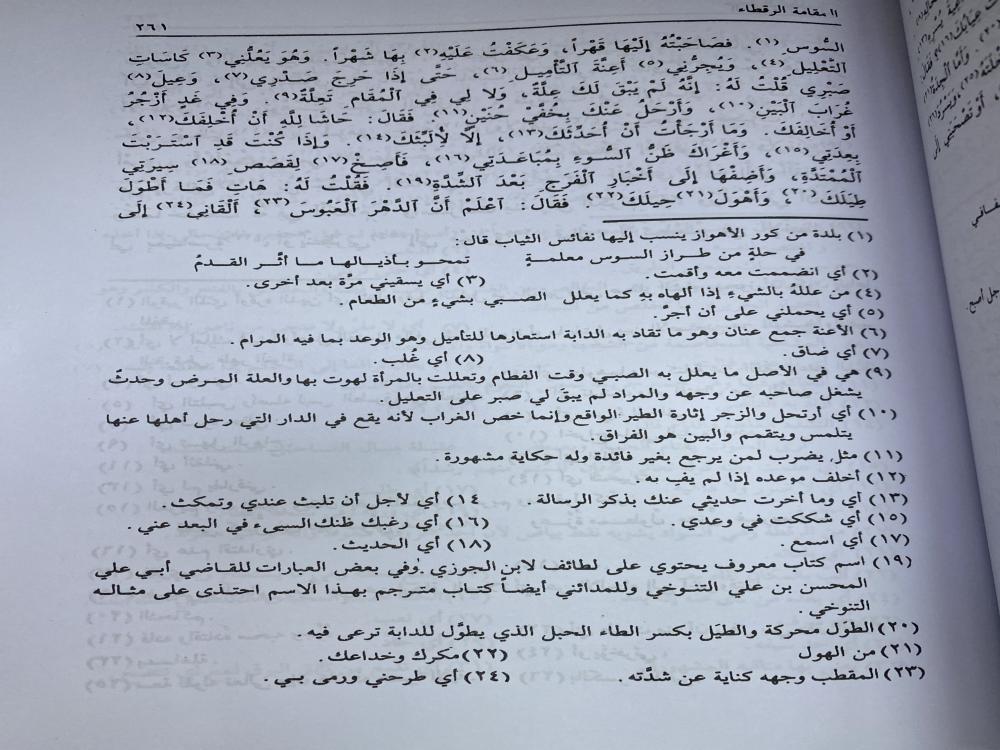 ١١ مقامة الرقطاء
٢٦١
السُّوسِ(١). فَصَاحَبْتُهُ إِلَيْهَا قَهْراً، وَعَكَفْتُ عَلَيْهِ(٢) بِهَا شَهْراً. وَهُوَ يَعُلُّنِي(٣) كَاسَاتِ
التَّعْلِيلِ(٤)، وَيُجِرُّنِي(٥) أَعِنَّةَ التَّأْمِيلِ(٦)، حَتَّى إِذَا حَرِجَ صَدْرِي(٧)، وَعِيلَ(٨)
صَبْرِي قُلْتُ لَهُ: إِنَّهُ لَمْ يَبْقَ لَكَ عِلَّةٌ، وَلَا لِي فِي الْمُقَامِ تَعِلَّةٌ(٩). وَفِي غَدٍ أَزْجُرُ
غُرَابَ الْبَيْنِ(١٠)، وَأَرْحَلُ عَنْكَ بِخُفَّيْ حُنَيْنٍ(١١). فَقَالَ: حَاشَا لِلَّهِ أَنْ أُخْلِفَكَ(١٢)،
أَوْ أُخَالِفَكَ. وَمَا أَرْجَأْتُ أَنْ أُحَدِّثَكَ(١٣)، إِلَّا لِأُلَبِّثَكَ(١٤). وَإِذَا كُنْتَ قَدِ اسْتَرَبْتَ
بِعِدَتِي(١٥)، وَأَغْرَاكَ ظَنُّ السُّوءِ بِمُبَاعَدَتِي(١٦)، فَأَصِخْ(١٧) لِقَصَصِ(١٨) سِيرَتِي
الْمُمْتَدَّةِ، وَأَضِفْهَا إِلَى أَخْبَارِ الْفَرَجِ بَعْدَ الشِّدَّةِ(١٩). فَقُلْتُ لَهُ: هَاتِ فَمَا أَطْوَلَ
طِيَلَكَ(٢٠)، وَأَهْوَلَ(٢١) حِيلَكَ(٢٢) فَقَالَ: اعْلَمْ أَنَّ الدَّهْرَ الْعَبُوسَ(٢٣)، أَلْقَانِي(٢٤) إِلَى
(١) بلدة من كور الأهواز ينسب إليها نفائس الثياب قال:
في حلةٍ من طراز السوس معلمةٍ تمحو بأذيالها ما أثَّر القدمُ
(٢) أي انضممت معه وأقمت. (٣) أي يسقيني مرَّة بعد أخرى.
(٤) من عللهُ بالشيءِ إذا ألهاه بهِ كما يعلل الصبي بشيءٍ من الطعام.
(٥) أي يحملني على أن أجرَّ.
(٦) الأعنة جمع عنان وهو ما تقاد به الدابة استعارها للتأميل وهو الوعد بما فيه المرام.
(٧) أي ضاق. (٨) أي غُلب.
(٩) هي في الأصل ما يعلل به الصبي وقت الفطام وتعللت بالمرأة لهوت بها والعلة المرض وحدثٌ
يشغل صاحبه عن وجهه والمراد لم يبقَ لي صبر على التعليل.
(١٠) أي أرتحل والزجر إثارة الطير الواقع وإنما خصر الغراب لأنه يقع في الدار التي رحل أهلها عنها
يتلمس ويتقمم والبين هو الفراق.
(١١) مثل يضرب لمن يرجع بغير فائدة وله حكاية مشهورة.
(١٢) أخلف موعده إذا لم يفِ به.
(١٣) أي وما أخرت حديثي عنك بذكر الرسالة. ١٤) أي لأجل أن تلبث عندي وتمكث.
(١٥) أي شككت في وعدي. (١٦) أي رغبك ظنك السيىء في البعد عني.
(١٧) أي اسمع. (١٨) أي الحديث.
(١٩) اسم كتاب معروف يحتوي على لطائف لابن الجوزي وفي بعض العبارات للقاضي أبي علي
المحسن بن علي التنوخي وللمدائني أيضاً كتاب مترجم بهذا الاسم احتذى على مثاله
التنوخي.
(٢٠) الطوَل محركة والطيَل بكسر الطاء الحبل الذي يطوَّل للدابة ترعى فيه.
(٢١) من الهول (٢٢) مكرك وخداعك.
(٢٣) المقطب وجهه كناية عن شدَّته. (٢٤) أي طرحني ورمى بي.